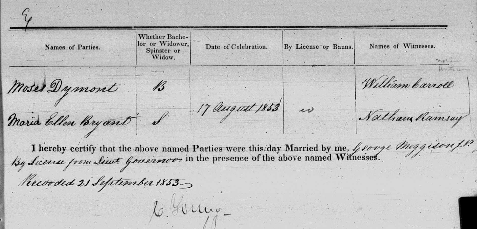 Names of Parties. Whether Bachelor or Widower, Spinster or Widow. Date of Celebration. By License or Banns. Names of Witnesses.
Moses Dymont B William Carroll
17 August 1853
Maria Ellen Bryant S Nathan Ramsay
I hereby certify that the above named Parties were this day Married by me, George Wiggison J.P.
By License from Lieut Governor in the presence of the above named Witnesses.
Recorded 21 September 1853